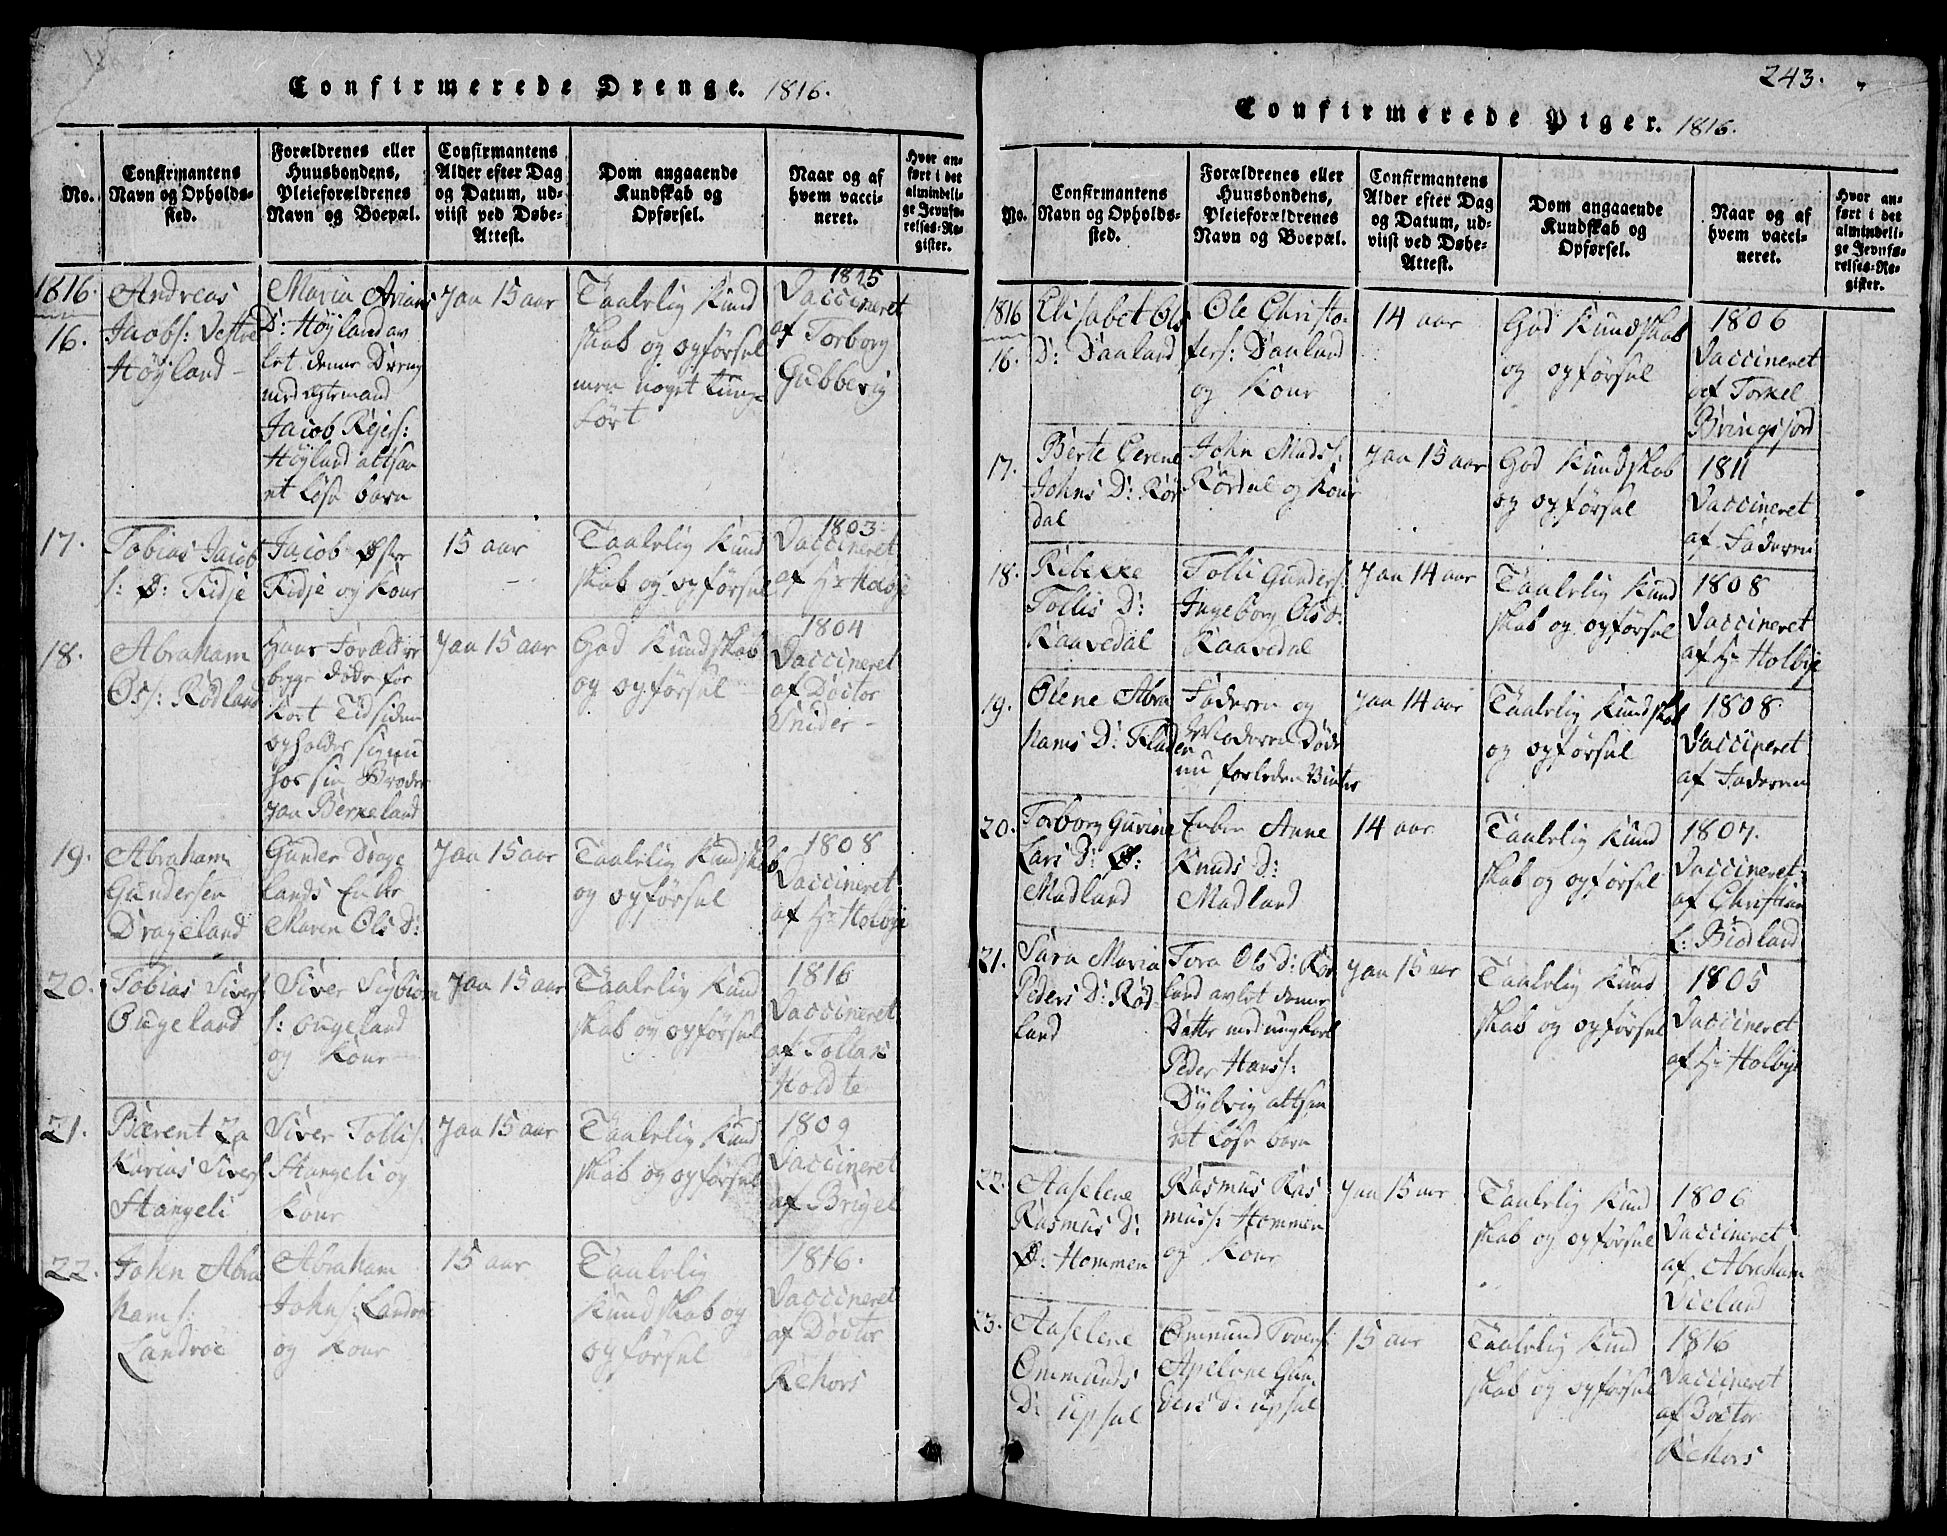 Confirmerede Drenge. 1816.
No.
Confirmantens
Navn og Opholds-
sted.
Forældrenes eller
Huusbondens,
Pleieforældrenes
Navn og Boepæl.
Confirmantens
Alder efter Dag
og Datum, ud-
viist ved Døbe-
Attest.
Dom angaaende
Kundskab og
Opførsel.
Naar og af
hvem vacci-
neret.
Hvor an-
ført i det
almindeli-
ge Jevnfø-
relses-Re-
gister.
1816.
16.
Andreas
Jacobs: Vestre
Høyland
Maria Arians
D: Høyland av
let denne Dreng
med ægtemand
Jacob Rejers:
Høyland altsaa
et Løse barn
Jaa 15 aar
Taalelig Kund
skab og opførsel
men noget tung
Lørt
1815
Vaccineret
af Torborg
Gubbevig
17.
Tobias Jacob
s: Ø: Fidje
Jacob Østre
Fidje og Kone
15 aar
Taalelig Kund
skab og opførsel
1803.
Vaccineret
af Hr Holbye
18.
Abraham
Ols: Rödland
Hans Forældre
begge døde for
kort Tid siden
opholder sig nu
hos sin Broder
Jaa Berkeland
Jaa 15 aar
God Kundskab
og opførsel
1804
Vaccineret
af Doctor
Snider
19.
Abraham
Gundersen
Drageland
Gunder Drage
lands Enke
Maren Ols D:
Jaa 15 aar
Taalelig Kundskab
og opførsel
1808
Vaccineret
af Hr Holbye
20.
Tobias Sivers:
Øugeland
Siver Sigbiørn
s: Øugeland
og Kone
Jaa 15 aar
Taalelig Kund
skab og opførsel
1816
Vaccineret
af Tollak
Holdte
21.
Bærent Za
Karias Sivers:
Stangeli
Siver Tollis:
Stangeli og
Kone
Jaa 15 aar
Taalelig Kund
skab og opførsel
1809
Vaccineret
af Brigel
22.
John Abra
hams:
Landrøe
Abraham
Johns: Landrø
og Kone
15 aar
Taalelig
Kundskab og
opførsel
1816.
Vaccineret
af Doctor
Rehors
243.
Confirmerede Piger. 1816.
No.
Confirmantens
Navn og Opholds-
sted.
Forældrenes eller
Huusbondens,
Pleieforældrenes
Navn og Boepæl.
Confirmantens
Alder efter Dag
og Datum, ud-
viist ved Døbe-
Attest.
Dom angaaende
Kundskab og
Opførsel.
Naar og af
hvem vacci-
neret.
Hvor an-
ført i det
almindeli-
ge Jevnfø-
relses-Re-
gister.
1816
16.
Elisabet Ols
D: Daaland
Ole Christo-
fers: Daaland
og Kone
14 aar
God Kundskab
og opførsel
1806
Vaccineret
af Torkel
Bringsjord
17.
Berte Serene
Johns D: Rör
dal
John Mads:
Rördal og Kone
Jaa 15 aar
God Kundskab
og opførsel
1811
Vaccineret
af Faderen
18.
Ribekke
Tollis D:
Raavedal
Tolli Gunders:
Ingeborg Ols D:
Raavedal
Jaa 14 aar
Taalelig Kund
skab og opførsel
1808
Vaccineret
af Hr Holbye
19.
Olene Abra
hams D: Fladen
Faderen og
Moderen Døde
nu forleden Vinter
Jaa 14 aar
Taalelig Kundskab
og opførsel
1808
Vaccineret
af Faderen
20.
Torborg Gurine
Lars D: Ø:
Madland
Enken Anne
Knuds D:
Madland
14 aar
Taalelig Kund
skab og opførsel
1807.
Vaccineret
af Christian
L: Biodland
21.
Sara Maria
Peders D: Rød
land
Tora Ols D: Rör
land avlet denne
Datter med ungkarl
Peder Hans:
Dybvig altsaa
et Løse barn
Jaa 15 aar
Taalelig Kund
skab og opførsel
1805
Vaccineret
af Hr Holbye
22.
Aaselene
Rasmus D:
Ø: Hommen
Rasmus Ras
mus: Hommen
og Kone
Jaa 15 aar
Taalelig Kund
skab og opførsel
1806
Vaccineret
af Abraham
Vieland
23.
Aaselene
Ommunds
D: Upsal
Ommund Troens:
Apelone Gun
ders D: Upsal
15 aar
Taalelig Kund
skab og opførsel
1816
Vaccineret
af Doctor
Rehors